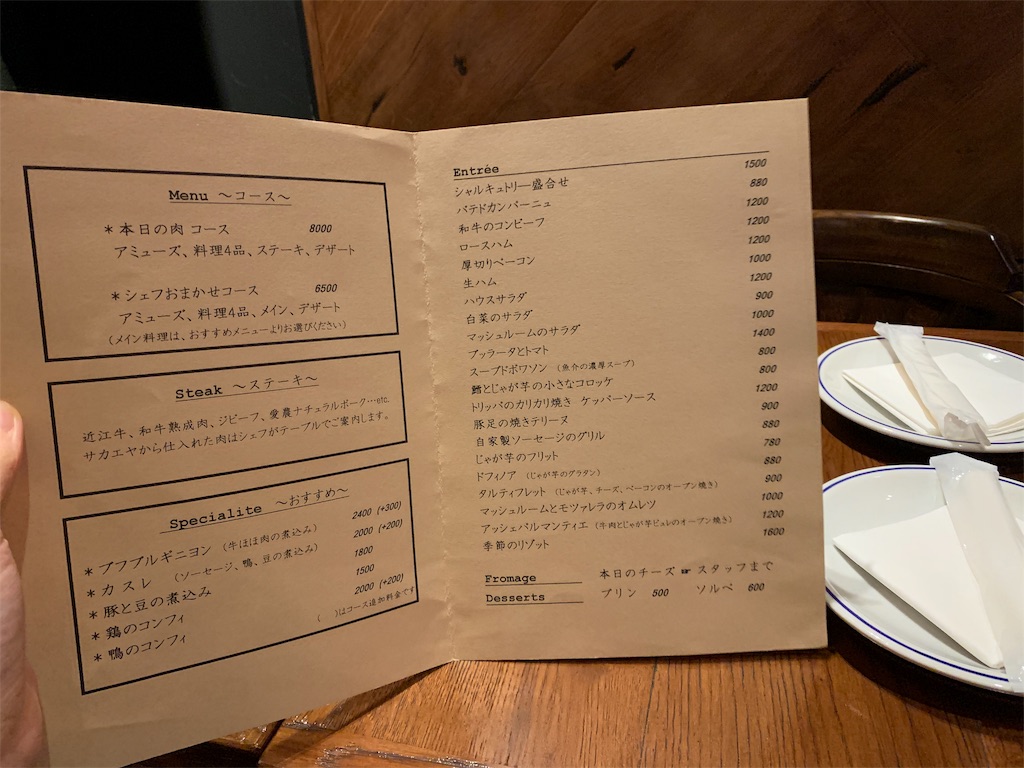 Menu ～コース～
＊本日の肉 コース 8000
アミューズ、料理4品、ステーキ、デザート
＊シェフおまかせコース 6500
アミューズ、料理4品、メイン、デザート
(メイン料理は、おすすめメニューよりお選びください)
Steak ～ステーキ～
近江牛、和牛熟成肉、ジビーフ、愛農ナチュラルポーク…etc.
サカエヤから仕入れた肉はシェフがテーブルでご案内します。
Specialite ～おすすめ～
＊ブフブルギニヨン (牛ほほ肉の煮込み) 2400 (+300)
＊カスレ (ソーセージ、鴨、豆の煮込み) 2000 (+200)
＊豚と豆の煮込み 1800
＊鶏のコンフィ 1500
＊鴨のコンフィ 2000 (+200)
( )はコース追加料金です
Entrée
シャルキュトリー盛合せ 1500
パテドカンパーニュ 880
和牛のコンビーフ 1200
ロースハム 1200
厚切りベーコン 1200
生ハム 1000
ハウスサラダ 1200
白菜のサラダ 900
マッシュルームのサラダ 1000
ブッラータとトマト 1400
スープドポワソン (魚介の濃厚スープ) 800
鱈とじゃが芋の小さなコロッケ 800
トリッパのカリカリ焼き ケッパーソース 1200
豚足の焼きテリーヌ 900
自家製ソーセージのグリル 880
じゃが芋のフリット 780
ドフィノア (じゃが芋のグラタン) 880
タルティフレット (じゃが芋、チーズ、ベーコンのオーブン焼き) 900
マッシュルームとモツァレラのオムレツ 1000
アッシェパルマンティエ (牛肉とじゃが芋ピュレのオーブン焼き) 1200
季節のリゾット 1600
Fromage 本日のチーズ ☞ スタッフまで
Desserts プリン 500 ソルベ 600